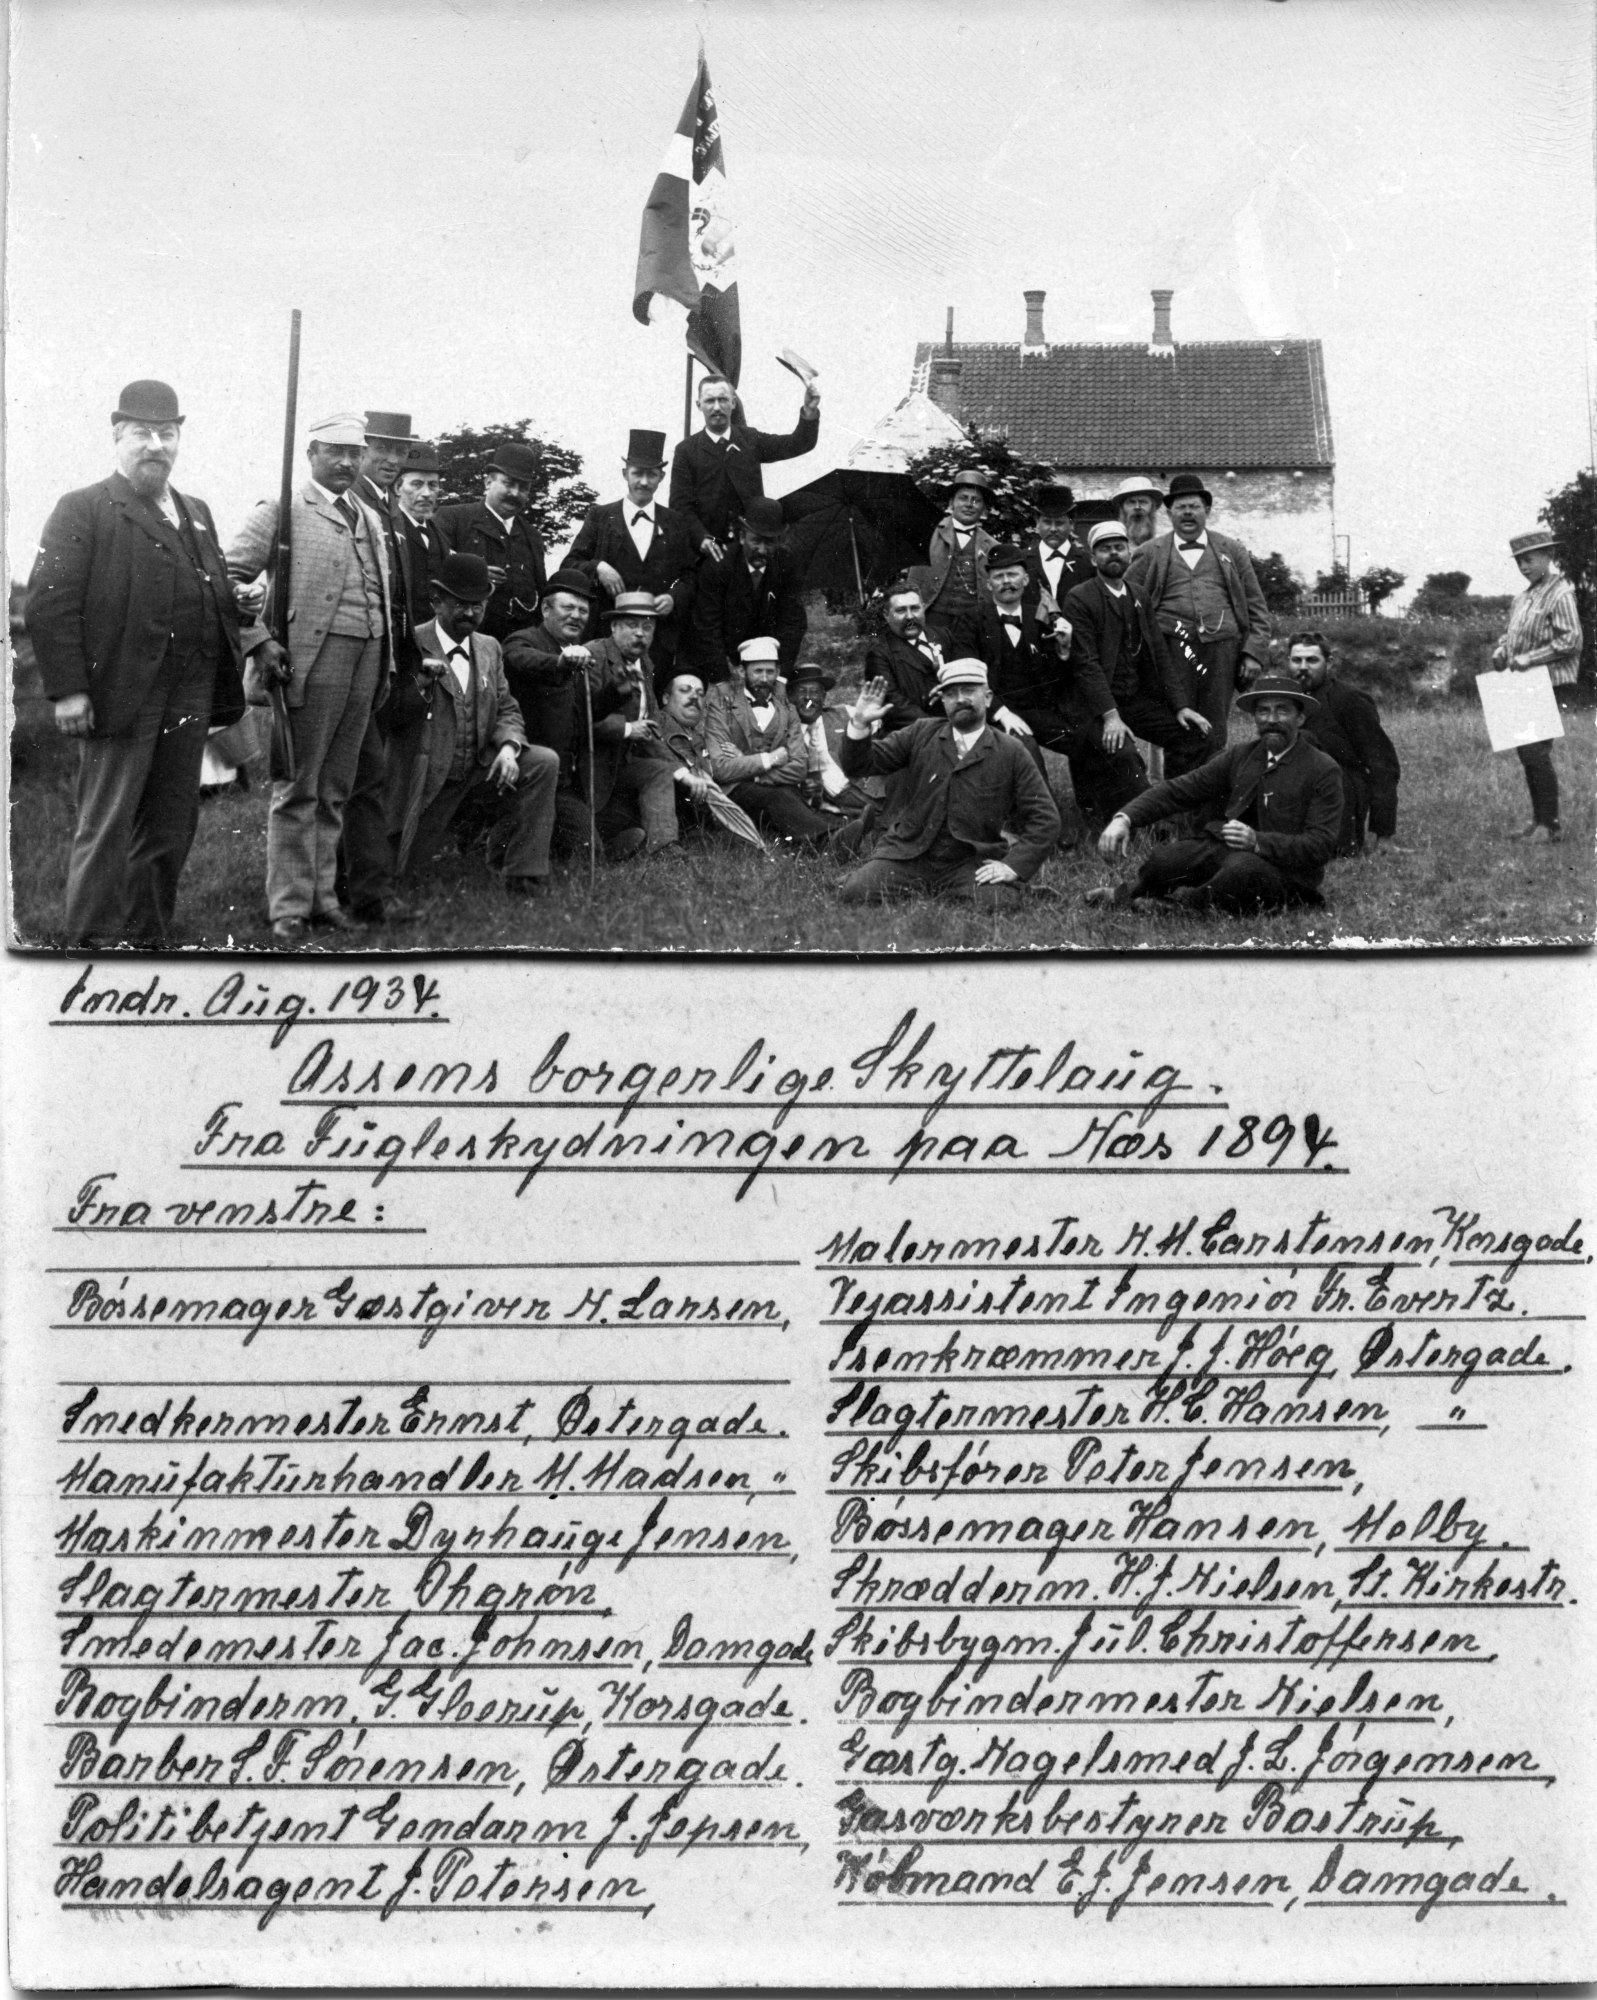 Indr. Aug. 1934.
Assens borgerlige Skyttelaug.
Fra Fugleskydningen paa Næs 1894.
Fra venstre:
Bøssemager Gæstgiver N. Larsen,
Snedkermester Ernst, Østergade.
Manufakturhandler M. Madsen, "
Maskinmester Dyrhauge Jensen,
Slagtermester Ohgrøn,
Smedemester Jac. Johnsen, Damgade
Bogbinderm. G. Gloerup, Korsgade.
Barber S. F. Sørensen, Østergade.
Politibetjent Gendarm J. Jepsen,
Handelsagent J. Petersen,
Malermester N. M. Carstensen, Korsgade.
Vejassistent Ingeniør Fr. Evertz.
Isenkræmmer J. J. Høeg, Østergade.
Slagtermester H. C. Hansen, "
Skibsfører Peter Jensen,
Bøssemager Hansen, Melby.
Skrædderm. H. J. Nielsen, St. Kirkestr.
Skibsbygm. Jul. Christoffersen,
Bogbindermester Nielsen,
Gæstg. Nagelsmed J. L. Jørgensen,
Gasværksbestyrer Bastrup,
Købmand E. J. Jensen, Damgade.